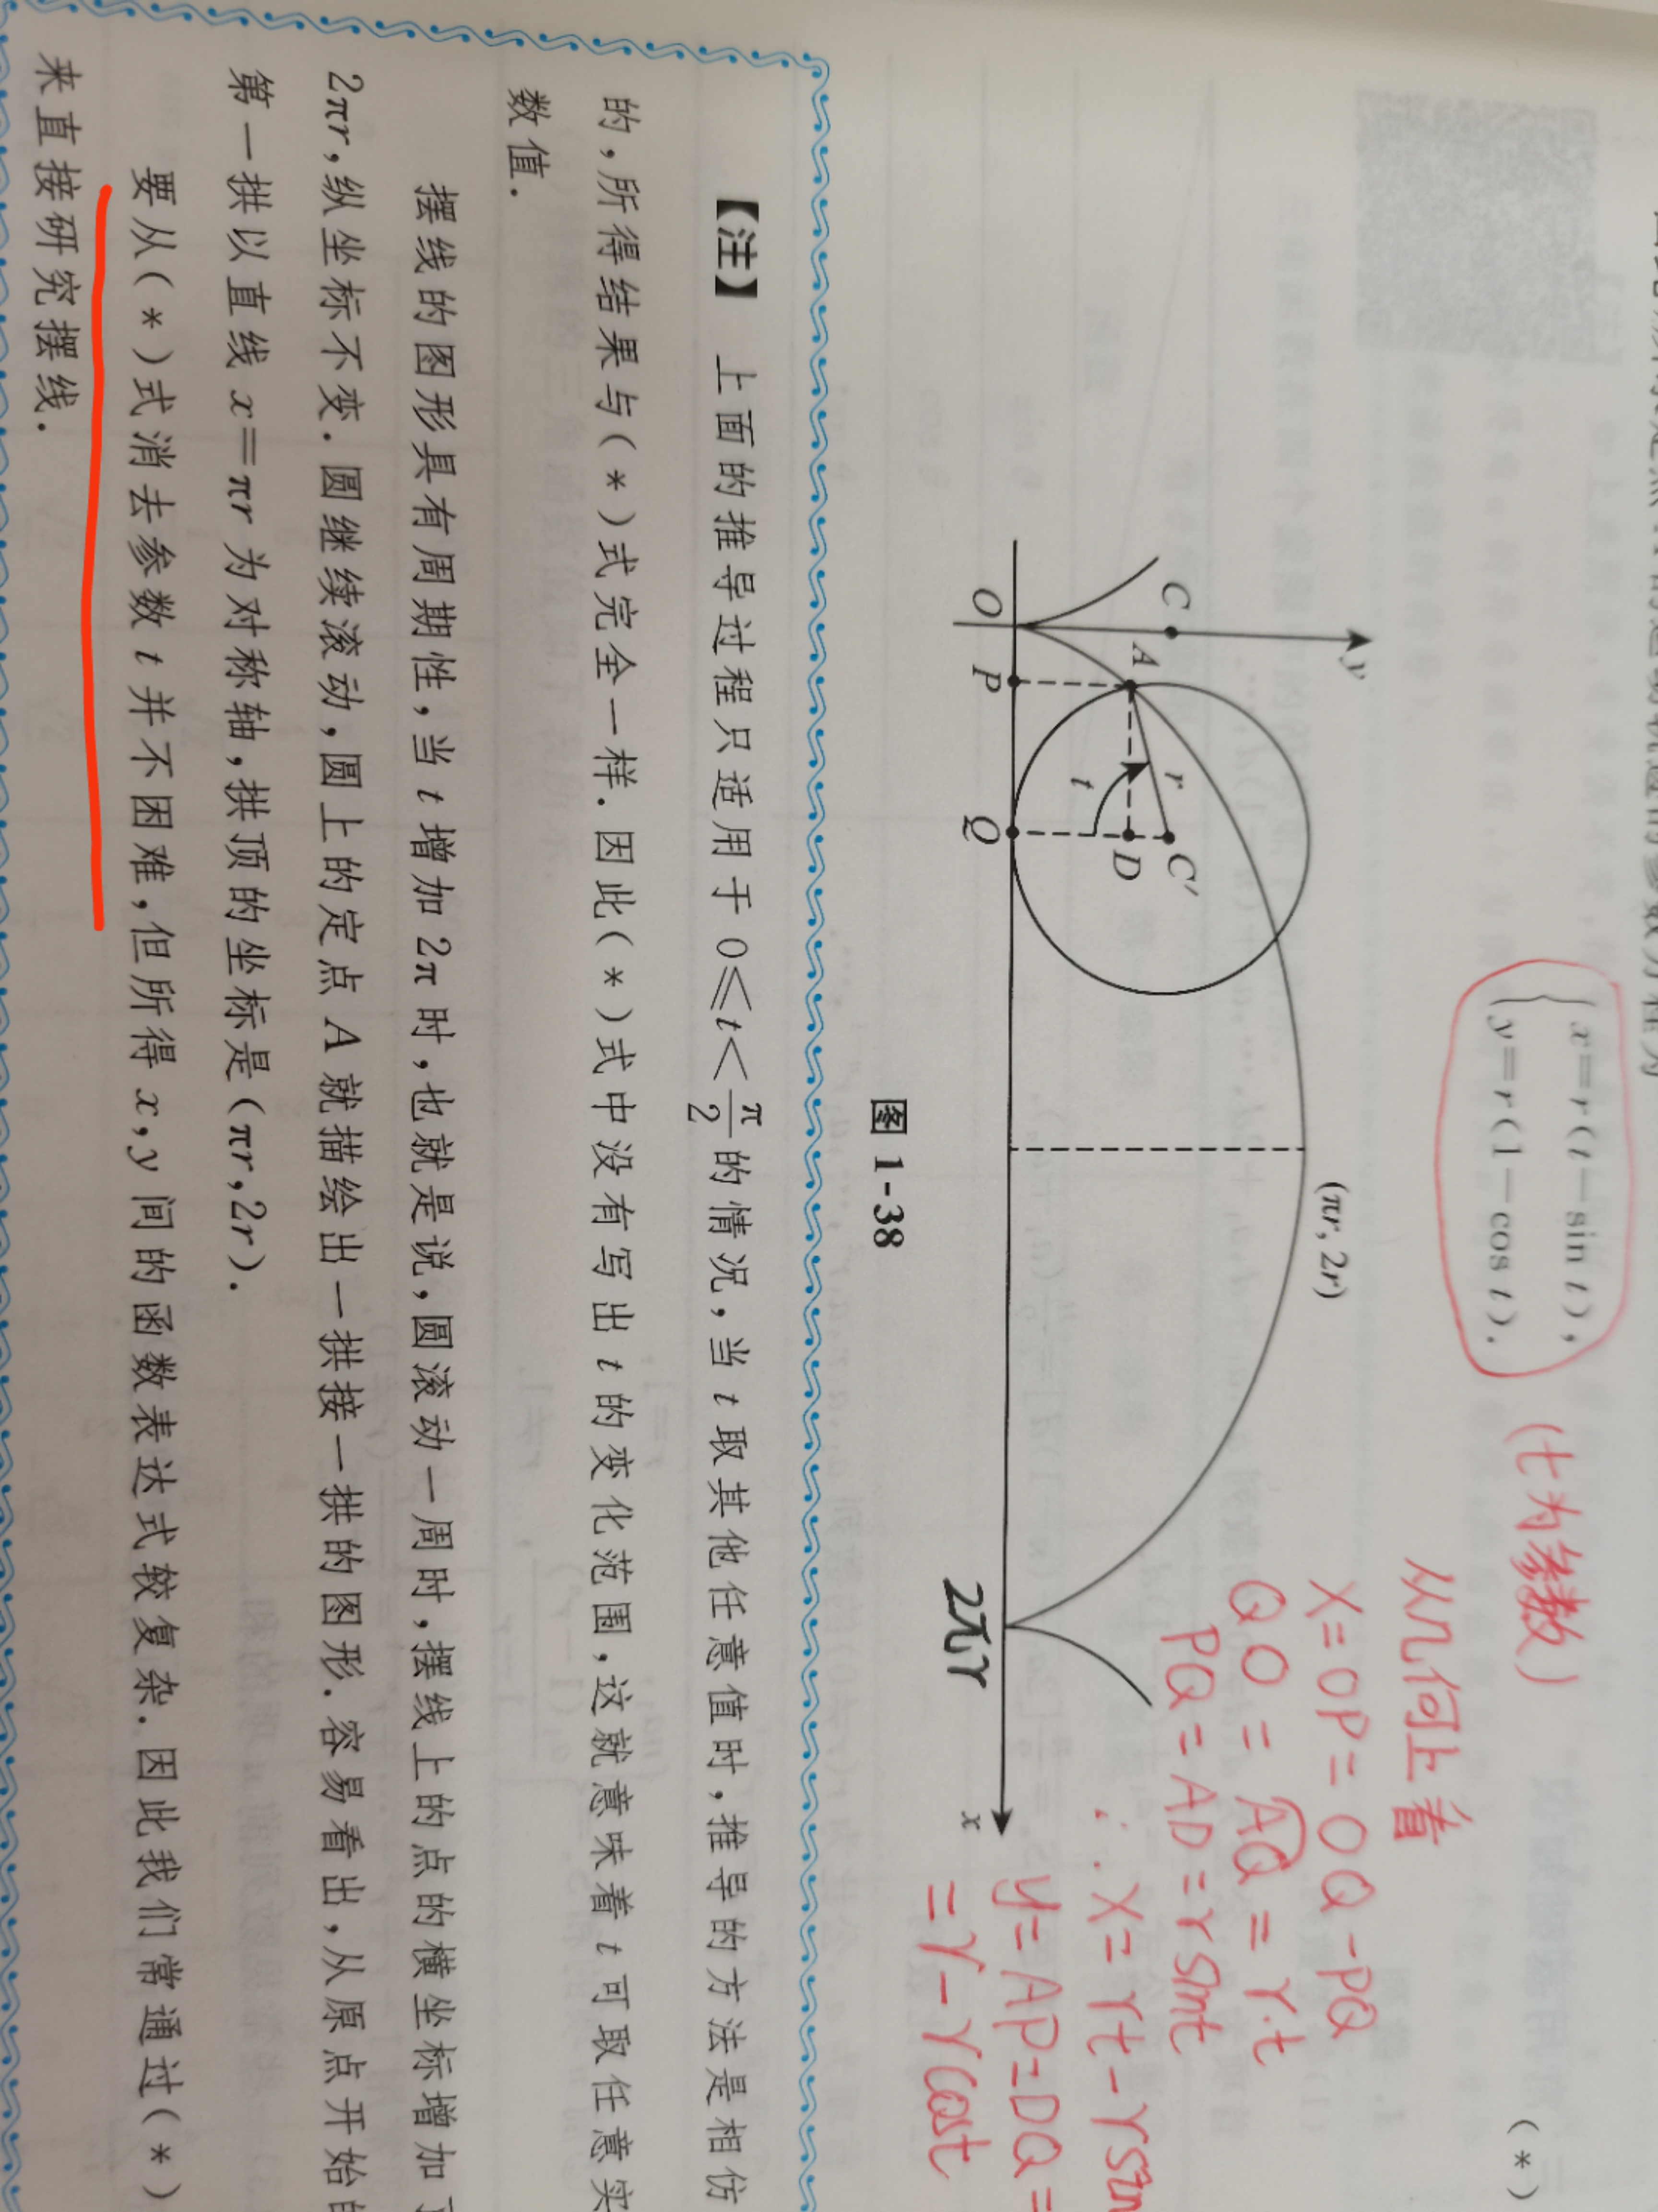 x=r(t-sin t),
y=r(1-cos t).
(t为参数)
(*)
从几何上看
X=OP=OQ-PQ
QO=AQ=r·t
PQ=AD=rsint
∴X=rt-rsin
y=AP=DQ=
=r-rcost
y
C
A
r
C′
D
t
O
P
Q
(πr, 2r)
2πr
x
图 1-38
【注】 上面的推导过程只适用于 0≤t<π/2的情况,当 t 取其他任意值时,推导的方法是相仿
的,所得结果与(*)式完全一样.因此(*)式中没有写出 t 的变化范围,这就意味着 t 可取任意实
数值.
摆线的图形具有周期性,当 t 增加 2π 时,也就是说,圆滚动一周时,摆线上的点的横坐标增加了
2πr,纵坐标不变.圆继续滚动,圆上的定点 A 就描绘出一拱接一拱的图形.容易看出,从原点开始的
第一拱以直线 x=πr 为对称轴,拱顶的坐标是(πr,2r).
要从(*)式消去参数 t 并不困难,但所得 x,y 间的函数表达式较复杂.因此我们常通过(*)
来直接研究摆线.